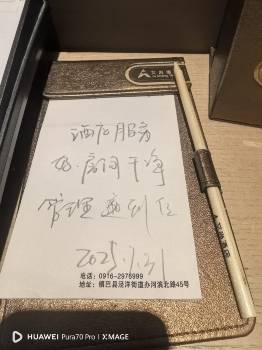 酒店服务
好.房间干净
管理到位
2025.1.31
电话：0916-2976999
地址：镇巴县泾洋街道办河滨北路45号
HUAWEI Pura70 Pro | XMAGE